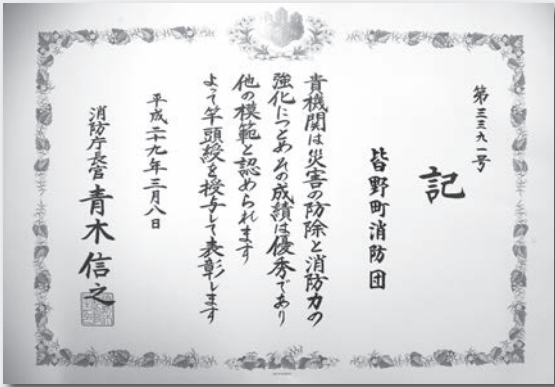 第三三九一号
記
皆野町消防団
貴機関は災害の防除と消防力の
強化につとめその成績は優秀であり
他の模範と認められます
よって竿頭綬を授与して表彰します
平成二十九年三月八日
消防庁長官 青木信之